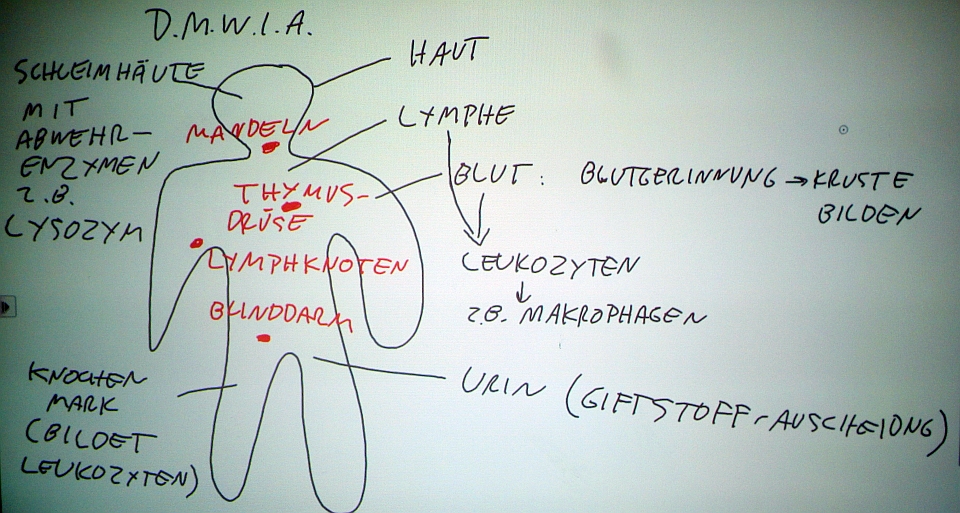 D.M.W.I.A.
HAUT
SCHLEIMHÄUTE
MIT
ABWEHR-
ENZYMEN
Z.B.
LYSOZYM
MANDELN
LYMPHE
THYMUS-
DRÜSE
BLUT: BLUTGERINNUNG → KRUSTE
BILDEN
LYMPHKNOTEN
LEUKOZYTEN
↓
Z.B. MAKROPHAGEN
BLINDDARM
KNOCHEN
MARK
(BILDET
LEUKOZYTEN)
URIN (GIFTSTOFF-AUSCHEIDUNG)